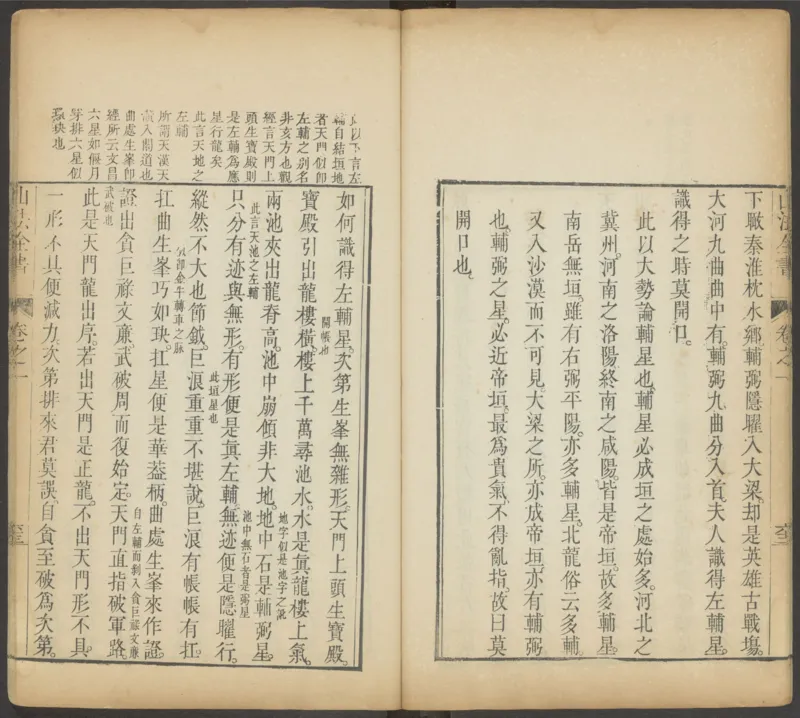 下瞰秦淮枕水鄉輔弼隱曜入大梁却是英雄古戰場
大河九曲曲中有輔弼九曲分入首夫人識得左輔星
識得之時莫開口
此以大勢論輔星也輔星必成垣之處始多河北之
冀州河南之洛陽終南之咸陽皆是帝垣故多輔星
南岳無垣雖有右弼平陽亦多輔星北龍俗云多輔
又入沙漠而不可見大梁之所亦成帝垣亦有輔弼
也輔弼之星必近帝垣最為貴氣不得亂指故曰莫
開口也
以下言左
輔自結垣地
者天門似卽
左輔之別名
非亥方也觀
經言天門上
頭生寶殿則
是左輔為應
星行龍矣
此言天地之
左輔
所謂天漢天
入閣道也
曲處生峯卽
經所云文昌
六星如偃月
穿排六星似
玦也
如何識得左輔星次第生峯無雜形天門上頭生寶殿
開帳也
寶殿引出龍樓橫樓上千萬尋池水水是眞龍樓上氣
地字似是池字之訛
兩池夾出龍脊高池中崩傾非大地地中石是輔弼星
此言天池之左輔
池中無石者是弼星
只分有迹與無形有形便是眞左輔無迹便是隱曜行
此垣星也
縱然不大也節鉞巨浪重重不堪說巨浪有帳帳有扛
扛曲生峯巧如玦扛星便是華葢柄曲處生峯來作證
證出貪巨祿文廉武破周而復始定天門直指破軍路
自左輔而剩入貪巨祿文廉
武破也
此是天門龍出序若出天門是正龍不出天門形不具
一形不具便減力次第排來君莫誤自貪至破為次第
山法全書
卷之一